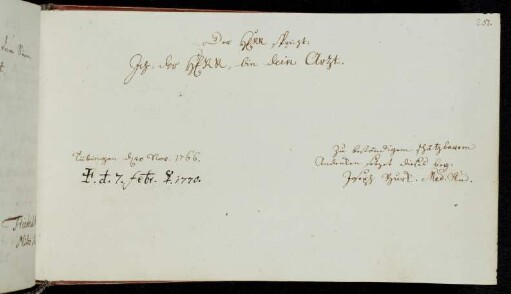 252.
Der HErr spricht:
Ich der HERR, bin dein Arzt.
Tübingen d. 20 Nov. 1766.
d. 7. febr. 1770.
Zu beständigem schätzbarem
Andenken setzet dieses bey
Joseph Med.